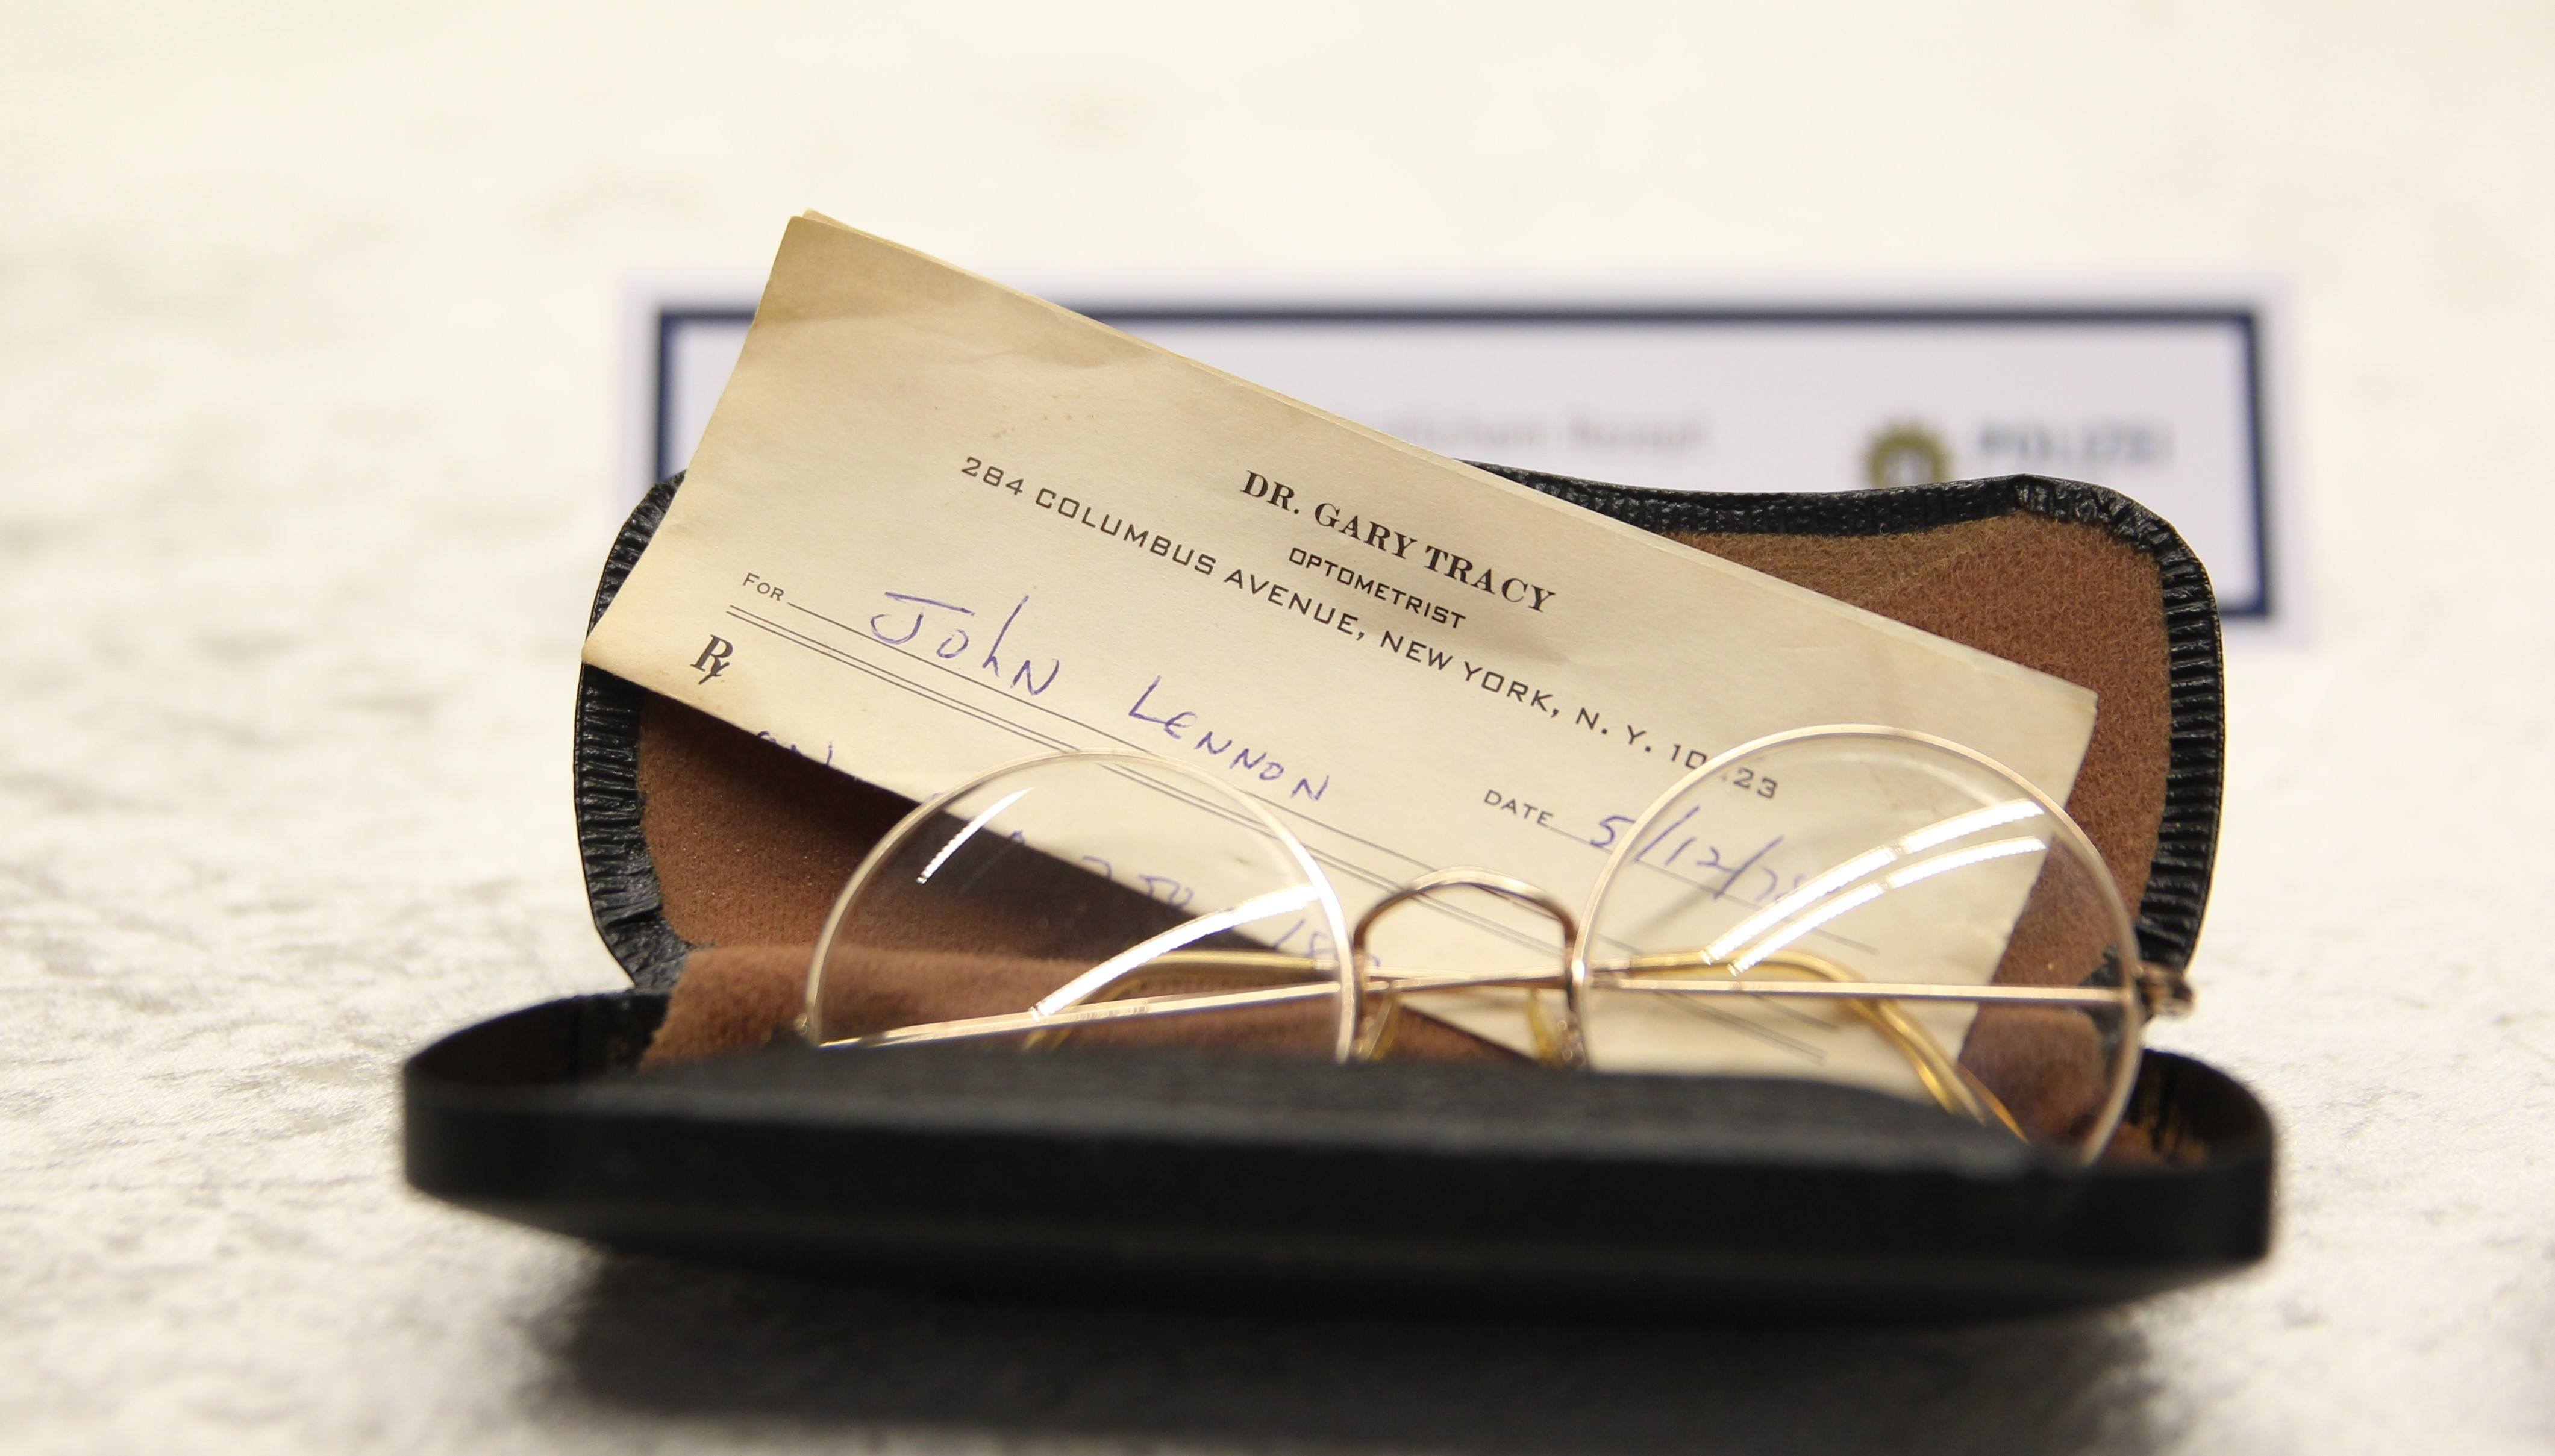 DR. GARY TRACY
OPTOMETRIST
284 COLUMBUS AVENUE, NEW YORK, N. Y. 10 23
FOR John LENNON
DATE 5/12/78
Rx
POLIZEI